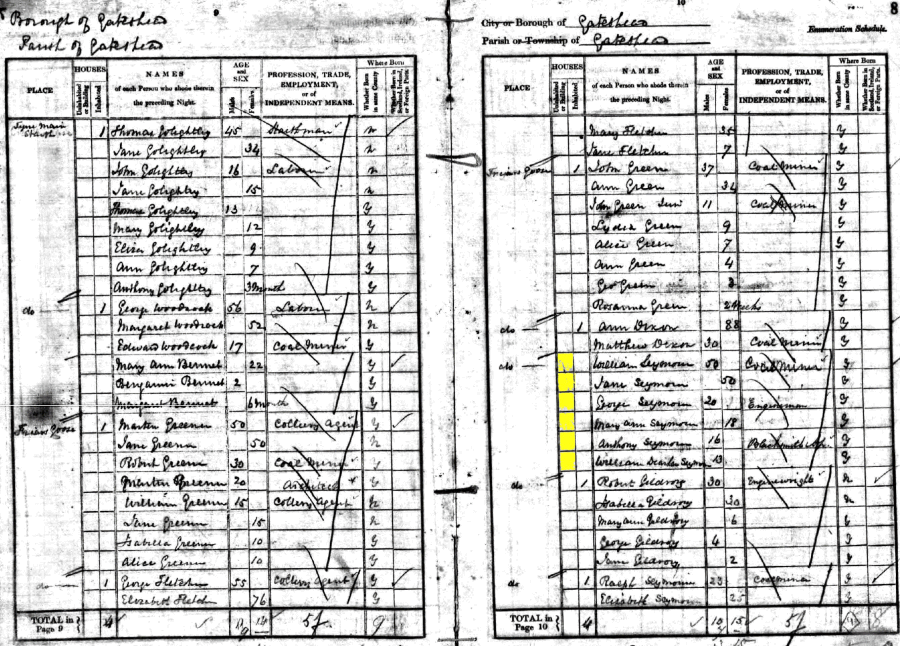 Borough of Gateshead
Parish of Gateshead
PLACE HOUSES Uninhabited or Building Inhabited NAMES of each Person who abode therein the preceding Night. AGE and SEX Males Females PROFESSION, TRADE, EMPLOYMENT, or of INDEPENDENT MEANS. Where Born Whether Born in same County Whether Born in Scotland, Ireland, or Foreign Parts.
1 Thomas Golightly 45 n
Jane Golightly 34 n
John Golightly 16 Labourer n
Jane Golightly 15 n
Thomas Golightly 13 y
Mary Golightley 12 y
Eliza Golightley 9 y
Ann Golightly 7 y
Anthony Golightly 3 month y
do 1 George Woodcock 56 Labourer n
Margaret Woodcock 52 n
Edward Woodcock 17 Coal Miner y
Mary Ann Bennet 22 y
Benjamin Bennet 2 y
Margaret Bennet 6 month y
Friars Goose 1 Martin Greener 50 Colliery Agent y
Jane Greener 50 n
Robert Greener 30 Coal Miner y
Martin Greener 20 Architect
William Greener 15 Colliery Agent n
Jane Greener 15 n
Isabella Greener 10 y
Alice Greener 10 y
1 George Fletcher 55 Colliery Agent y
Elizabeth Fletcher 76 y
TOTAL in Page 9 4 51 9
8
City or Borough of Gateshead
Parish or Township of Gateshead
Enumeration Schedule.
PLACE HOUSES Uninhabited or Building Inhabited NAMES of each Person who abode therein the preceding Night. AGE and SEX Males Females PROFESSION, TRADE, EMPLOYMENT, or of INDEPENDENT MEANS. Where Born Whether Born in same County Whether Born in Scotland, Ireland, or Foreign Parts.
Mary Fletcher 35 y
Jane Fletcher 7 y
Friars Goose 1 John Green 37 Coal Miner y
Ann Green 34 y
John Green Jun 11 Coal Miner y
Lydia Green 9 y
Alice Green 7 y
Ann Green 4 y
Geo Green y
Rosanna Green 2 weeks y
do 1 Ann Dixon 88 y
Matthew Dixon 30 Coal Miner y
do William Seymour 50 Coal Miner y
Jane Seymour 50 y
George Seymour 20 Engineman y
Mary Ann Seymour 18 y
Anthony Seymour 16 Blacksmith y
William Seymour 13 y
1 Robert Gildroy 30 Enginewright n
Isabella Gildroy 30 n
Mary Ann Gildroy 6 y
George Gildroy 4 y
Jane Gildroy 2 y
do 1 Ralph Seymour 23 Coalminer y
Elizabeth Seymour 25 y
TOTAL in Page 10 4 10 15 51 8